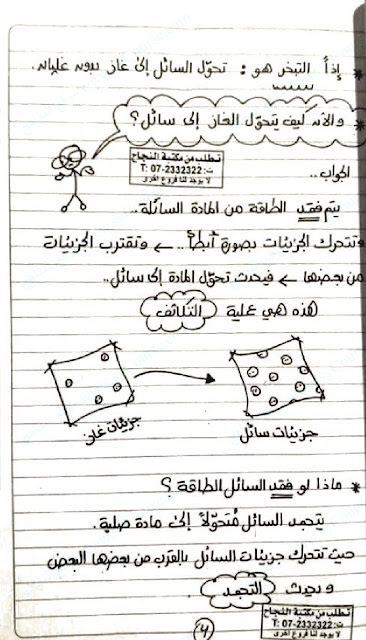 * إذاً التبخر هو : تحوّل السائل إلى غاز بدون غليانه.
* والآن كيف يتحوّل الغاز إلى سائل ؟
تطلب من مكتبة النجاح
ت: 07-2332322 :T
لا يوجد لنا فروع اخرى
الجواب ..
يتم فقد الطاقة من المادة السائلة ..
وتتحرك الجزيئات بصورة أبطأ .. ← وتقترب الجزيئات
من بعضها ← فيحدث تحوّل المادة إلى سائل ..
هذه هي عملية التكاثف
جزيئات غاز
جزيئات سائل
* ماذا لو فقد السائل الطاقة ؟
يتجمد السائل مُتحوّلاً إلى مادة صلبة .
حيث تتحرك جزيئات السائل بالقرب من بعضها البعض
ويحدث التجمد .
تطلب من مكتبة النجاح
ت: 07-2332322 :T
لا يوجد لنا فروع اخرى
(٤)